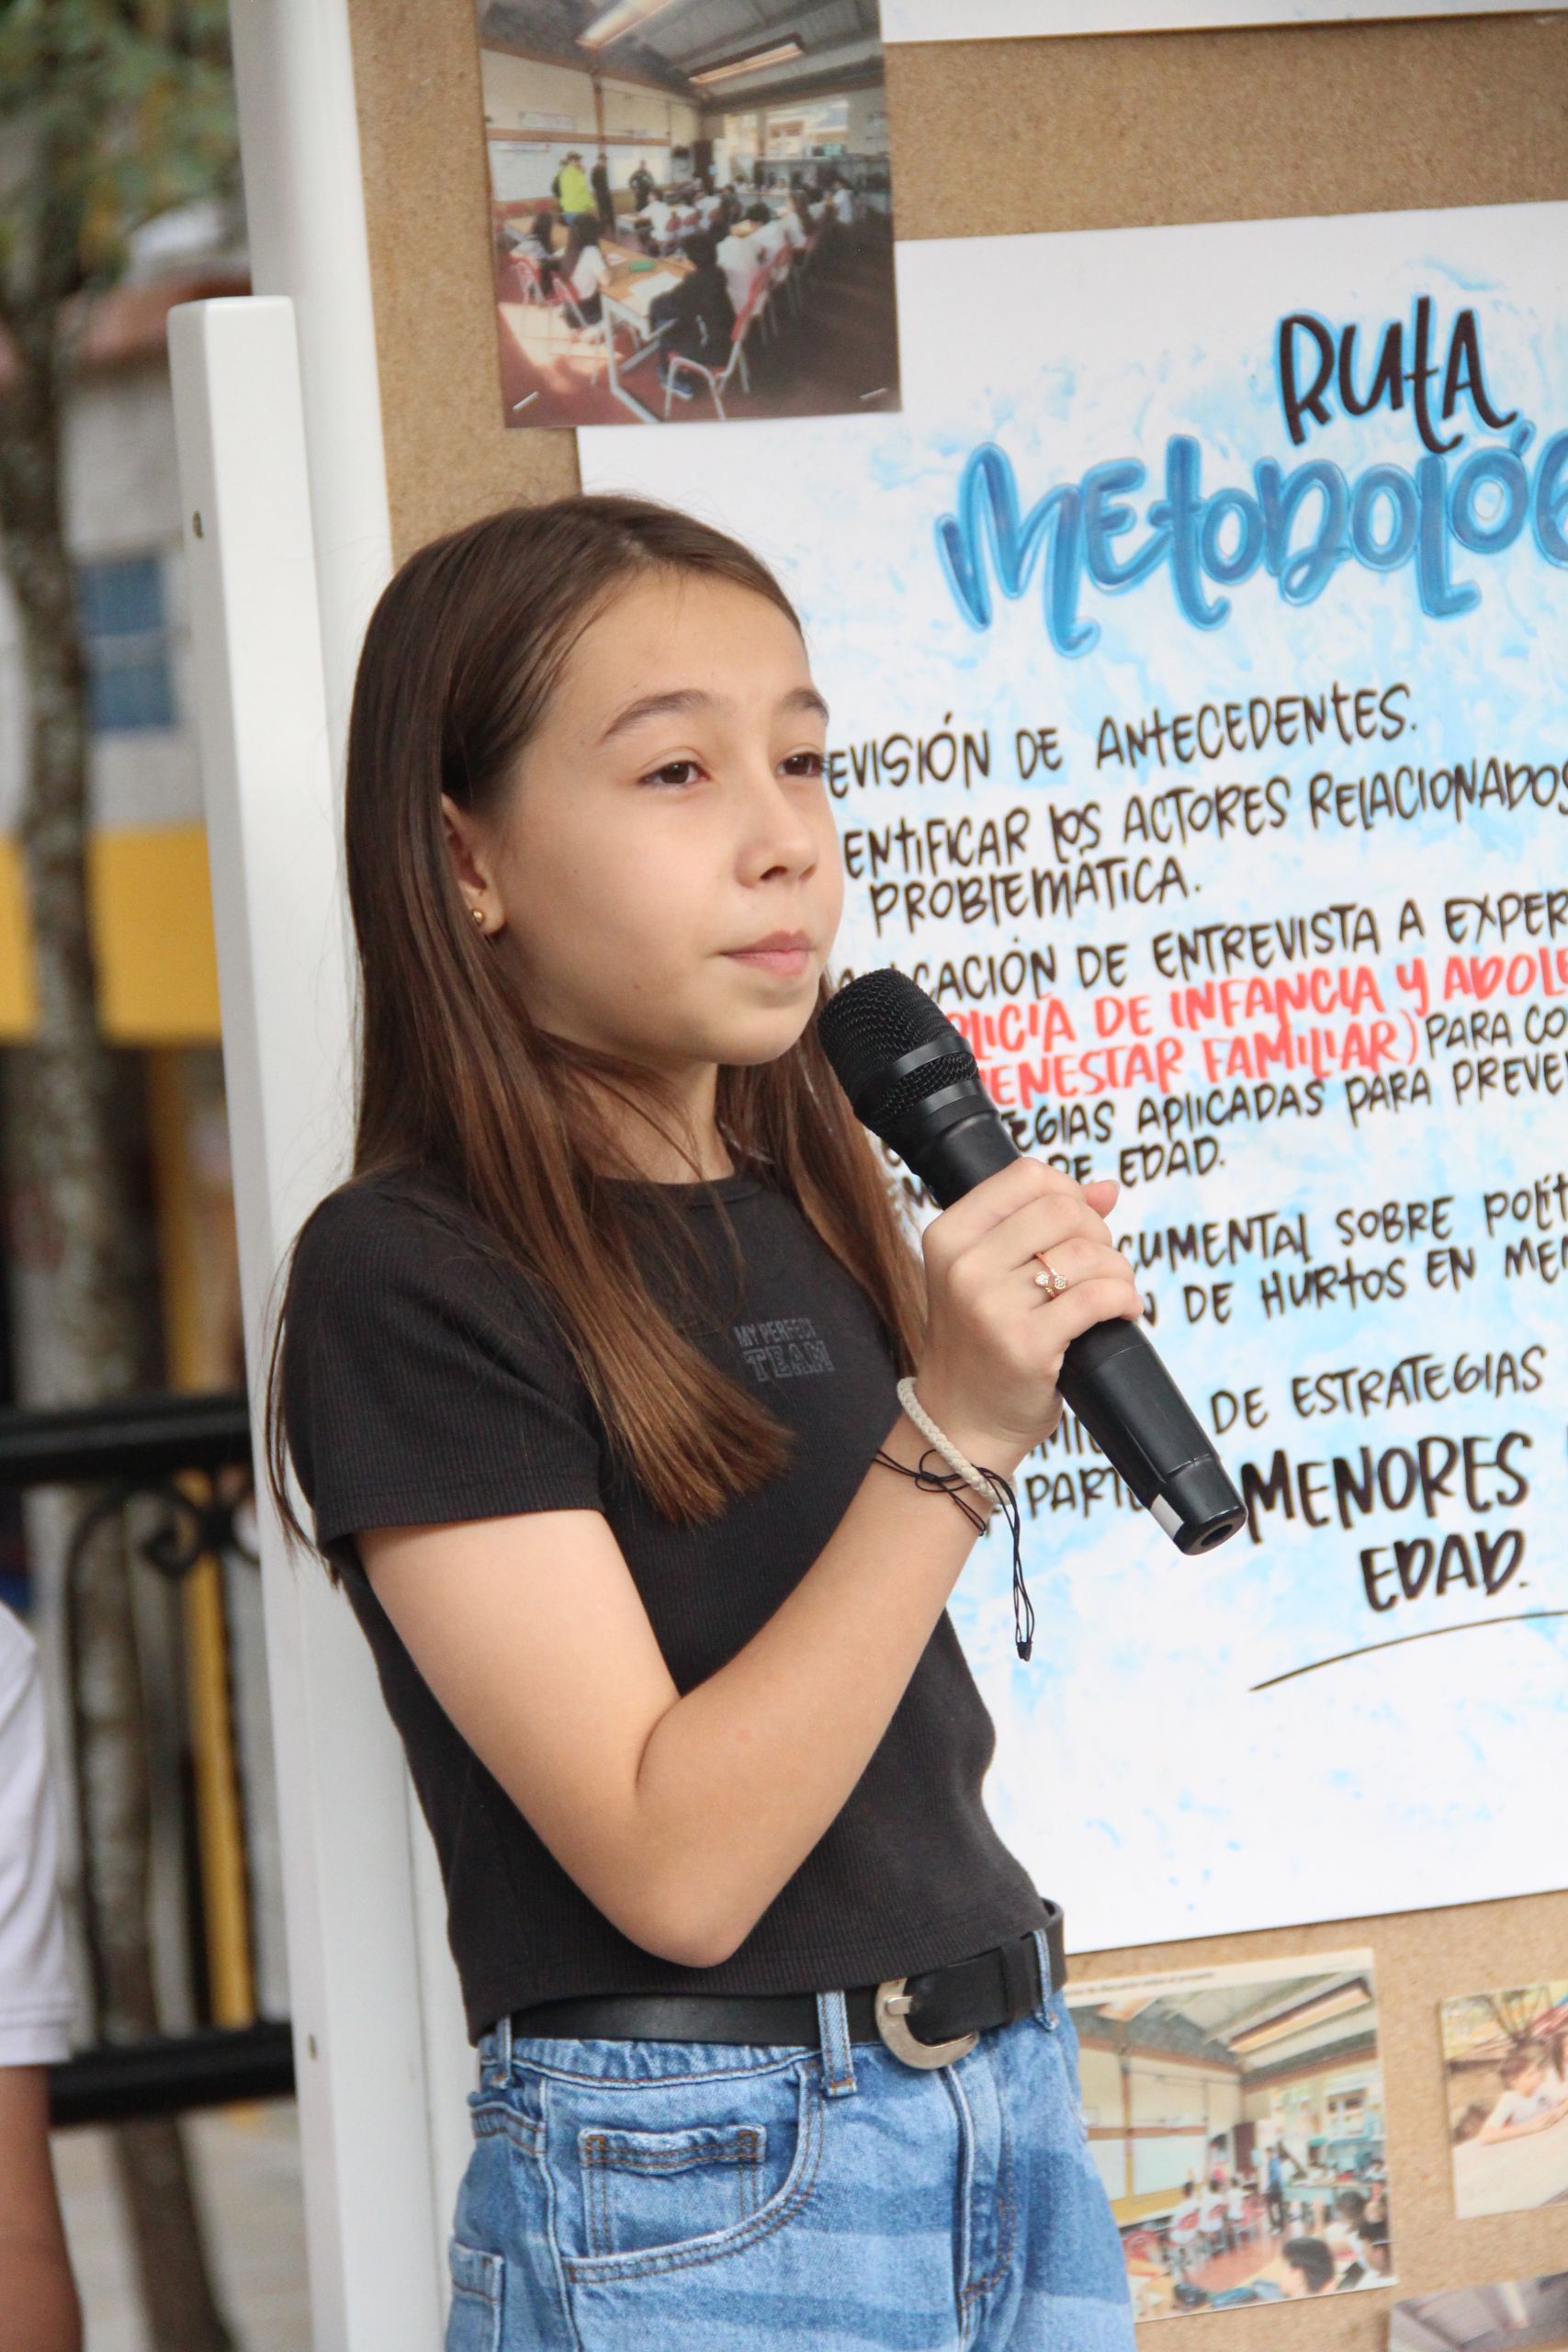 RUTA
METODOLÓG
EVISIÓN DE ANTECEDENTES.
ENTIFICAR LOS ACTORES RELACIONADOS
PROBLEMÁTICA.
CACIÓN DE ENTREVISTA A EXPER
LICÍA DE INFANCIA Y ADOLE
IENESTAR FAMILIAR) PARA CO
TEGIAS APLICADAS PARA PREVE
DE EDAD.
CUMENTAL SOBRE POLÍT
N DE HURTOS EN MEN
DE ESTRATEGIAS
PARTE MENORES
EDAD.
MY PERFECT
TEAM